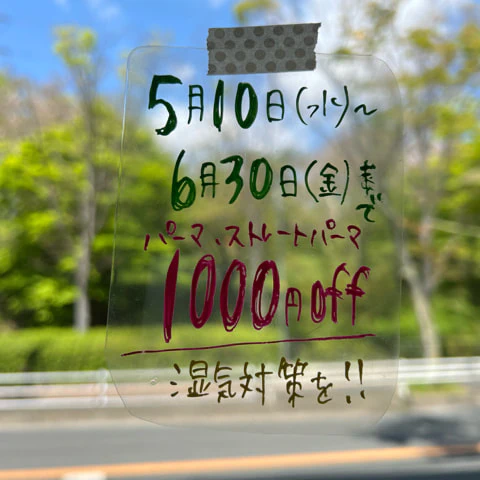 5月10日(水)〜
6月30日(金)まで
パーマ、ストレートパーマ
1000円off
湿気対策を!!